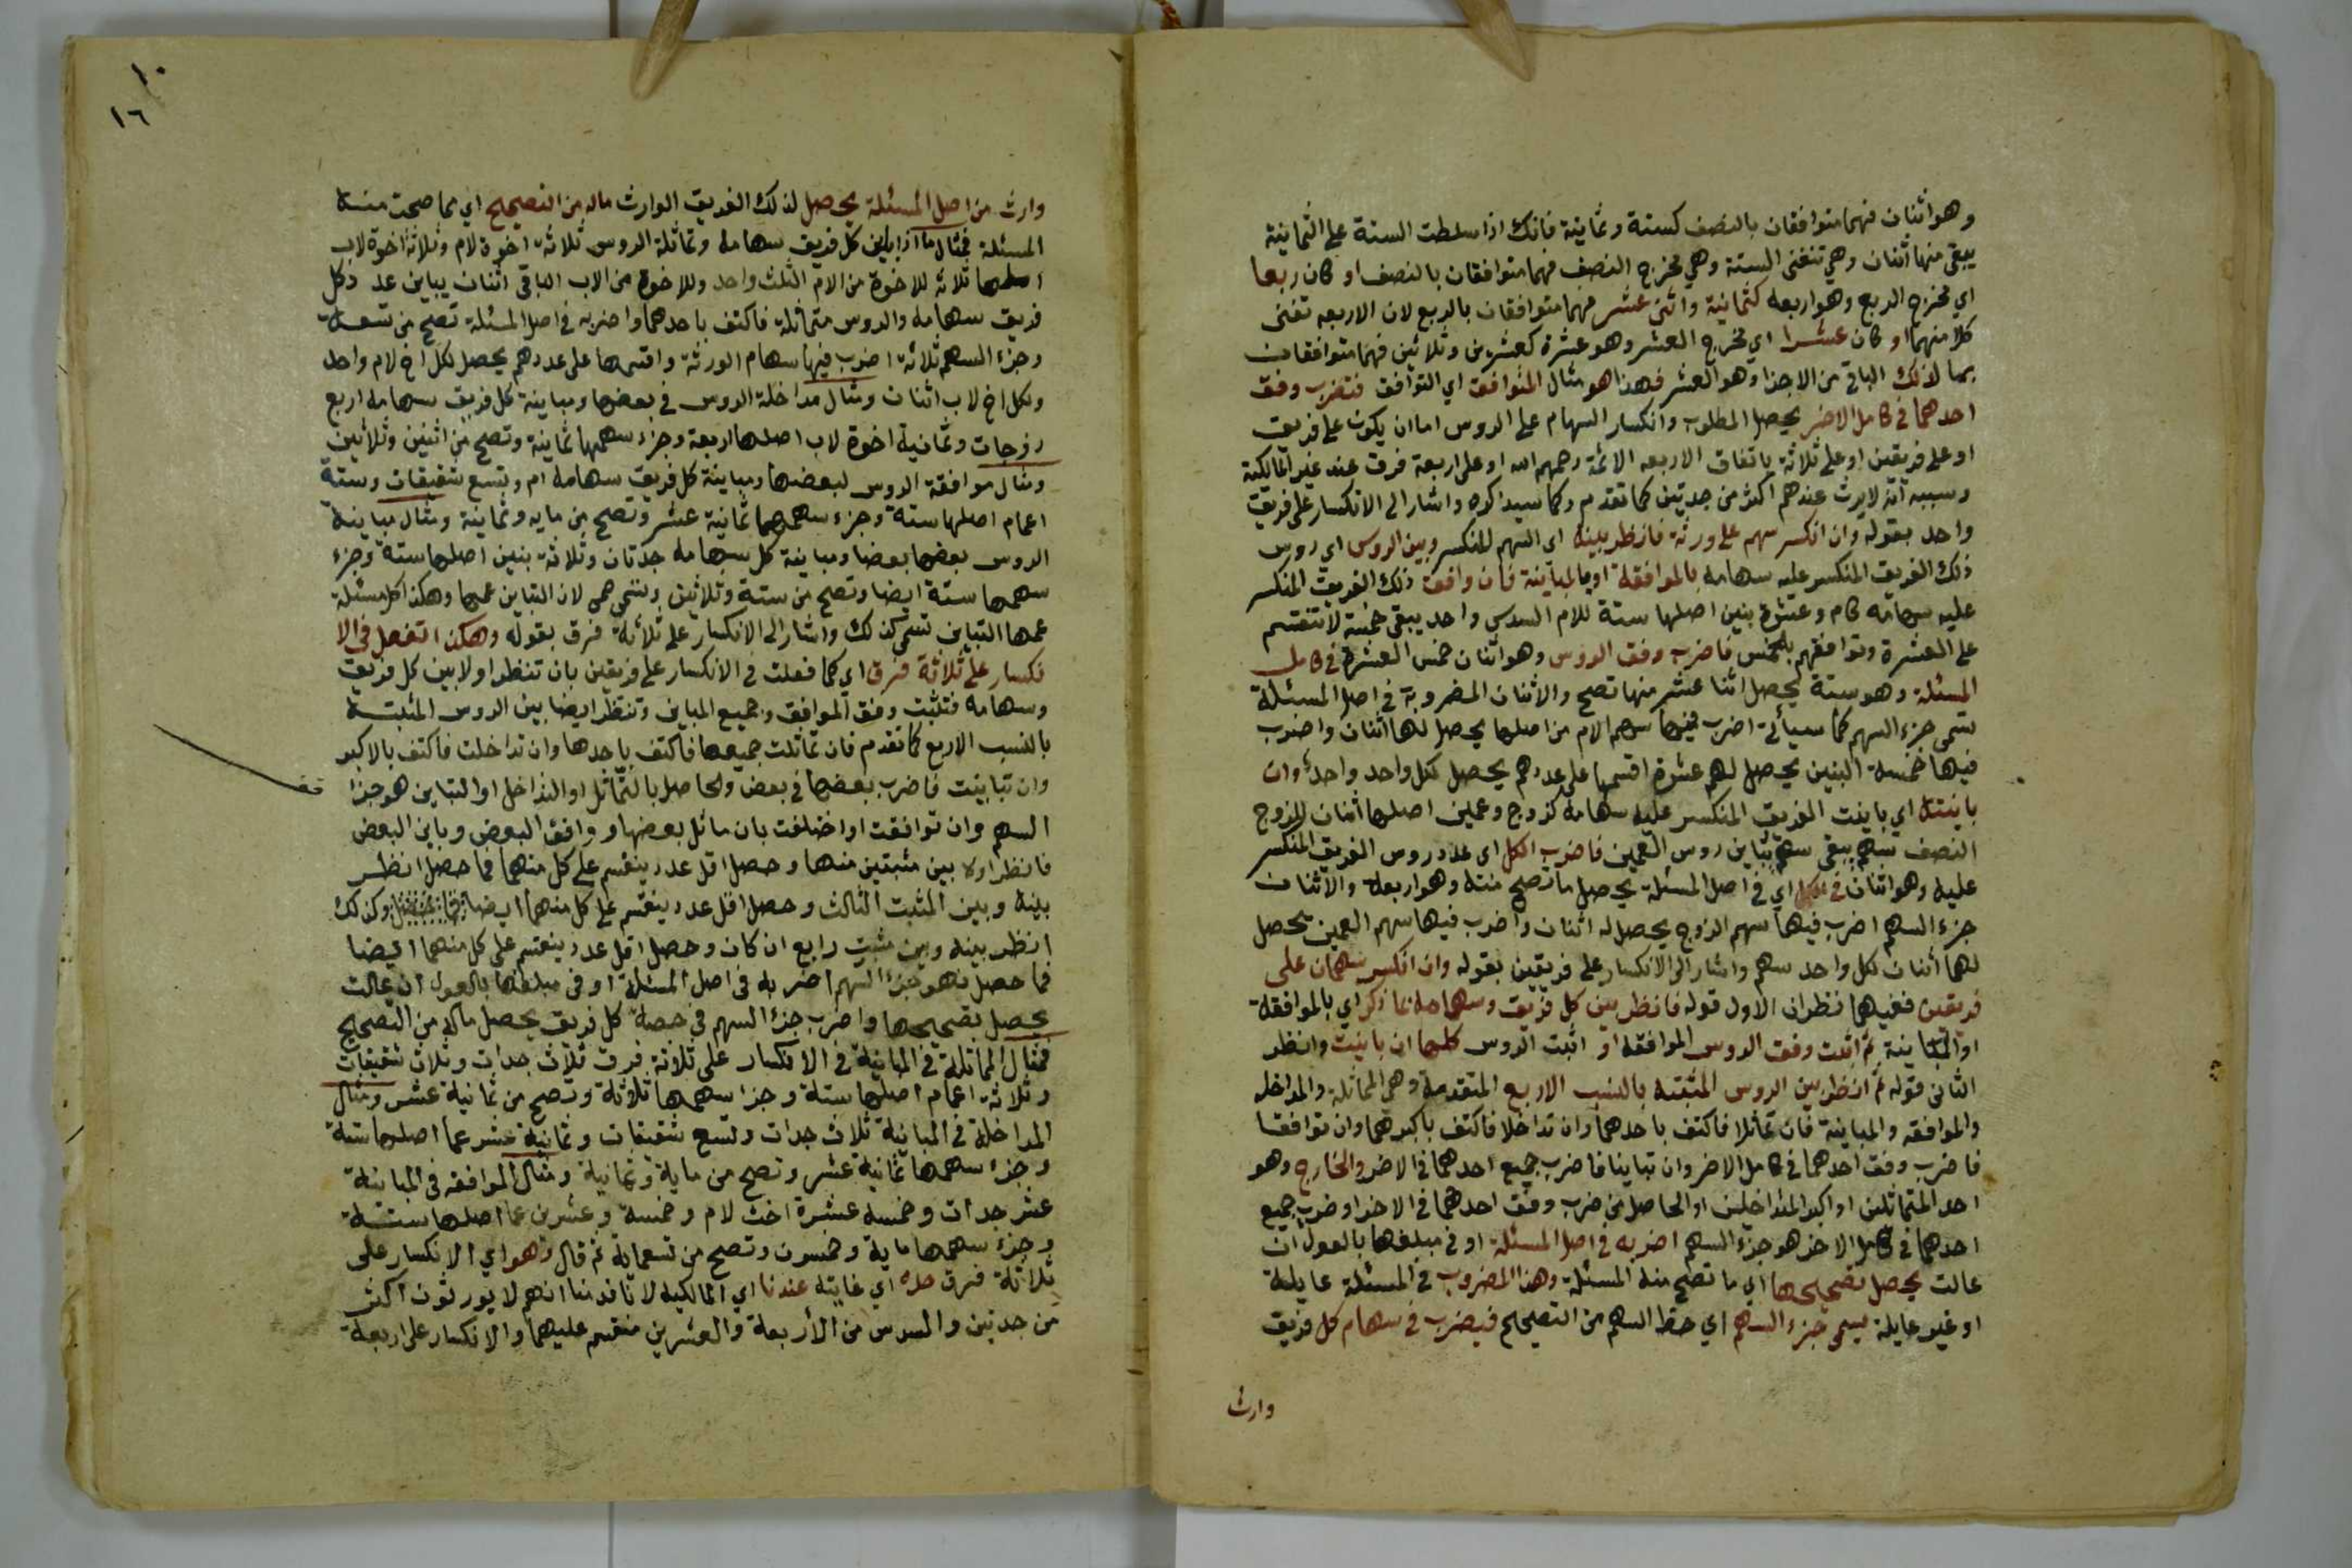 وهو اثنان فهما متوافقان بالنصف كستة وثمانية فانك اذا سلطت الستة على الثمانية
يبقى منها اثنان وهي تفنى الستة وهي مخرج النصف فهما متوافقان بالنصف او كان ربعا
اي مخرج الربع وهو اربعة كثمانية واثنى عشر فهما متوافقان بالربع لان الاربعه تفنى
كلا منهما او كان عشرا اي مخرج العشر وهو عشرة كعشرين وثلاثين فهما متوافقان
بما لذلك الباقي من الاجزا وهو العشر فهذا هو مثال المتوافق اي التوافق فتضرب وفق
احدهما في كامل الاخر يحصل المطلوب وانكسار السهام على الروس اما ان يكون على فريق
او على فريقين او على ثلاثة باتفاق الاربعه الائمة رحمهم الله او على اربعة فرق عند غير المالكية
وسببه انه لا يرث عندهم اكثر من جدتين كما تقدم وكما سيذكره واشار الى الانكسار على فريق
واحد بقوله وان انكسر سهم على ورثة فانظر بينه اي السهم المنكسر وبين الروس اي روس
ذلك الفريق المنكسر عليه سهامه بالموافقة او بالمباينة فان وافق ذلك الفريق المنكسر
عليه سهامه كام وعشرة بنين اصلها ستة للام السدس واحد يبقى خمسة لا تنقسم
على العشرة وتوافقهم بالخمس فاضرب وفق الروس وهو اثنان خمس العشرة في كامل
المسئلة وهو ستة يحصل اثنا عشر منها تصح والاثنان المضروبة في اصل المسئلة
تسمى جزء السهم كما سيأتي اضرب فيها سهم الام من اصلها يحصل لها اثنان واضرب
فيها خمسة البنين يحصل لهم عشرة اقسمها على عددهم يحصل لكل واحد واحد وان
باينته اي باينت الفريق المنكسر عليه سهامه كزوج وعمين اصلها اثنان للزوج
النصف سهم يبقى سهم يباين روس العمين فاضرب الكل اي عدد روس الفريق المنكسر
عليه وهو اثنان في الكل اي في اصل المسئلة يحصل ما تصح منه وهو اربعة والاثنان
جزء السهم اضرب فيها سهم الزوج يحصل له اثنان واضرب فيها سهم العمين يحصل
لهما اثنان لكل واحد سهم واشار الى الانكسار على فريقين بقوله وان انكسر سهمان على
فريقين ففيهما نظران الاول قوله فانظر بين كل فريق وسهامه بما ذكر اي بالموافقة
او المباينة ثم اثبت وفق الروس الموافقة او اثبت الروس كلها ان باينت وانظر
الثاني قوله ثم انظر بين الروس المثبته بالنسب الاربع المتقدمة وهي المماثلة والمداخله
والموافقه والمباينة فان تماثلا فاكتف باحدهما وان تداخلا فاكتف باكبرهما وان توافقا
فاضرب وفق احدهما في كامل الاخر وان تباينا فاضرب جميع احدهما في الاخر والخارج وهو
احد المتماثلين او اكبر المتداخلين او الحاصل من ضرب وفق احدهما في الاخر او ضرب جميع
احدهما في كامل الاخر هو جزء السهم اضربه في اصل المسئلة او في مبلغها بالعول ان
عالت يحصل تصحيحها اي ما تصح منه المسئلة وهذا المضروب في المسئلة عايلة
او غير عايلة يسمى جزء السهم اي حظ السهم من التصحيح فيضرب في سهام كل فريق
وارث
١٠
١٦
وارث من اصل المسئلة يحصل لذلك الفريق الوارث ماله من التصحيح اي مما صحت منه
المسئلة فمثال ما اذا باين كل فريق سهامه وتماثلة الروس ثلاثة اخوة لام وثلاثة اخوة لاب
اصلها ثلاثة للاخوة من الام الثلث واحد وللاخوة من الاب الباقي اثنان يباين عدد كل
فريق سهامه والروس متماثلة فاكتف باحدهما واضربه في اصل المسئلة تصح من تسعة
وجزء السهم ثلاثة اضرب فيها سهام الورثة واقسمها على عددهم يحصل لكل اخ لام واحد
ولكل اخ لاب اثنان ومثال مداخلة الروس في بعضها ومباينة كل فريق سهامه اربع
زوجات وثمانية اخوة لاب اصلها اربعة وجزء سهمها ثمانية وتصح من اثنين وثلاثين
ومثال موافقة الروس لبعضها ومباينة كل فريق سهامه ام وتسع شقيقات وستة
اعمام اصلها ستة وجزء سهمها ثمانية عشر وتصح من مايه وثمانية ومثال مباينة
الروس بعضها بعضا ومباينة كل سهامه جدتان وثلاثة بنين اصلها ستة وجزء
سهمها ستة ايضا وتصح من ستة وثلاثين وتسمى لان التباين عمها وهكذا كل مسئلة
عمها التباين تسمى كذلك واشار الى الانكسار على ثلاثة فرق بقوله وهكذا تفعل في الا
نكسار على ثلاثة فرق اي كما فعلت في الانكسار على فريقين بان تنظر اولا بين كل فريق
وسهامه فتثبت وفق الموافق وجميع المباين وتنظر ايضا بين الروس المثبتة
بالنسب الاربع كما تقدم فان تماثلت جميعها فاكتف باحدها وان تداخلت فاكتف بالاكبر
وان تباينت فاضرب بعضها في بعض والحاصل بالتماثل او التداخل او التباين هو جزء
السهم وان توافقت او اختلفت بان ماثل بعضها ووافق البعض وباين البعض
فانظر اولا بين مثبتين منها وحصل اقل عدد ينقسم على كل منهما فما حصل انظر
بينه وبين المثبت الثالث وحصل اقل عدد ينقسم على كل منهما ايضا وكذلك
انظر بينه وبين مثبت رابع ان كان وحصل اقل عدد ينقسم على كل منهما ايضا
فما حصل فهو جزء السهم اضربه في اصل المسئلة او في مبلغها بالعول ان عالت
يحصل تصحيحها واضرب جزء السهم في حصة كل فريق يحصل ماله من التصحيح
فمثال المماثلة في المباينة في الانكسار على ثلاثة فرق ثلاث جدات وثلاث شقيقات
وثلاثة اعمام اصلها ستة وجزا سهمها ثلاثة وتصح من ثمانية عشر ومثال
المداخلة في المباينة ثلاث جدات وتسع شقيقات وثمانية عشر عما اصلها ستة
وجزء سهمها ثمانية عشر وتصح من ماية وثمانية ومثال الموافقه في المباينة
عشر جدات وخمسه عشرة اخت لام وخمسة وعشرين عما اصلها ستة
وجزء سهمها ماية وخمسون وتصح من تسعماية ثم قال وهو اي الانكسار على
ثلاثة فرق حده اي غايته عندنا اي المالكيه لانا قدمنا انهم لا يورثون اكثر
من جدتين والسدس من الأربعة والعشرين منقسم عليهما والانكسار على اربعة